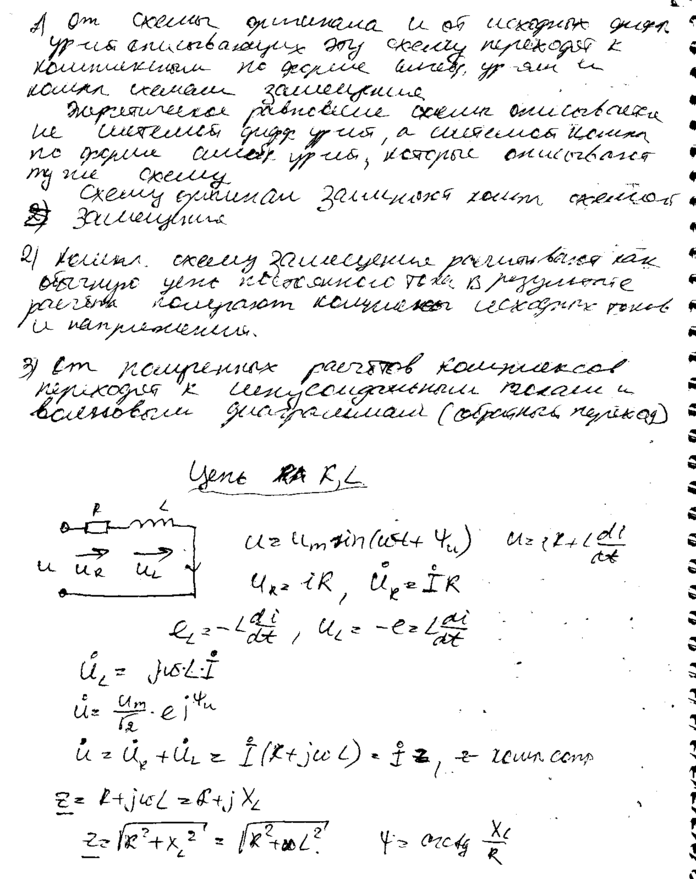 1) От схемы оригинала и от исходных дифф
ур-ий описывающих эту схему переходят к
комплексным по форме алгеб. ур-ям и
компл схемам замещения
Энергетическое равновесие схемы описывается
не системой дифф ур-ий, а системой компл
по форме алгеб. ур-ий, которые описывают
ту же схему
Схему оригинал заменяют компл схемой
замещения
2) Компл. схему замещения расчитывают как
обычную цепь постоянного тока в результате
расчёта получают комплексы исходных токов
и напряжения.
3) От полученных расчётов комплексов
переходят к синусоидальным токам и
волновым диаграммам (обратный переход)
Цепь R, L
R L
u u_R u_L
u = u_m sin(ωt + Ψ_u) u = iR + L di/dt
u_R = iR, U̇_R = İR
e_L = -L di/dt, u_L = -e = L di/dt
U̇_L = jω·L·İ
U̇ = u_m/√2 · e^jΨ_u
U̇ = U̇_R + U̇_L = İ(R + jωL) = İ z, z - компл сопр
z = R + jωL = R + jX_L
z = √(R² + X_L²) = √(R² + ωL²) Ψ = arctg X_L/R